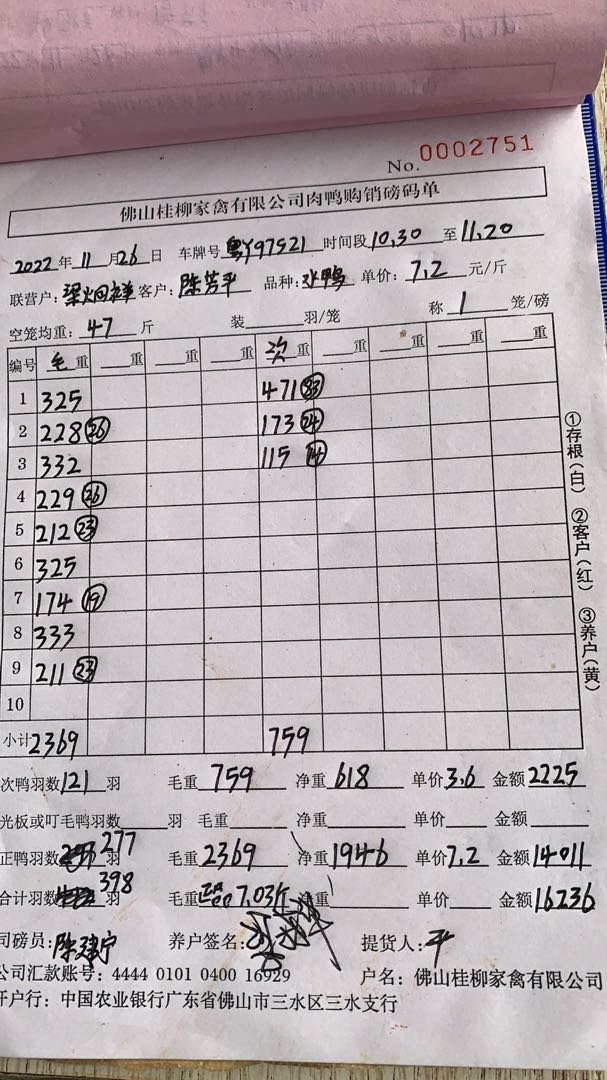 No. 0002751
佛山桂柳家禽有限公司肉鸭购销磅码单
2022年 11月26日 车牌号 粤Y97S21 时间段 10,30 至 11,20
联营户: 客户: 陈芳平 品种: 水鸭 单价: 7,2 元/斤
空笼均重: 47 斤 装 羽/笼 称 1 笼/磅
编号 毛重 重 重 重 次重 重 重 重 重
1 325 471 83
2 228 26 173 24
3 332 115 14
4 229 26
5 212 23
6 325
7 174 19
8 333
9 211 23
10
小计 2369 759
次鸭羽数 121 羽 毛重 759 净重 618 单价 3.6 金额 2225
光板或叮毛鸭羽数 羽 毛重 净重 单价 金额
正鸭羽数 277 羽 毛重 2369 净重 1946 单价 7,2 金额 14011
合计羽数 398 羽 毛重 正品 7.03斤 净重 单价 金额 16236
司磅员: 陈建宁 养户签名: 提货人: 平
公司汇款账号: 4444 0101 0400 16929 户名: 佛山桂柳家禽有限公司
开户行: 中国农业银行广东省佛山市三水区三水支行
①存根(白) ②客户(红) ③养户(黄)